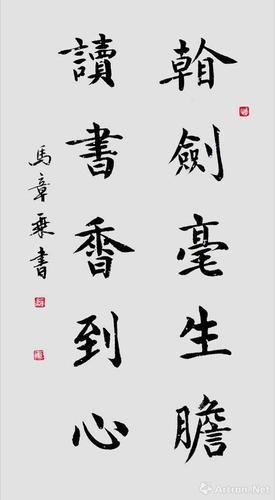 劍毫生膽
讀書香到心
馬章乘書
Artron.Net